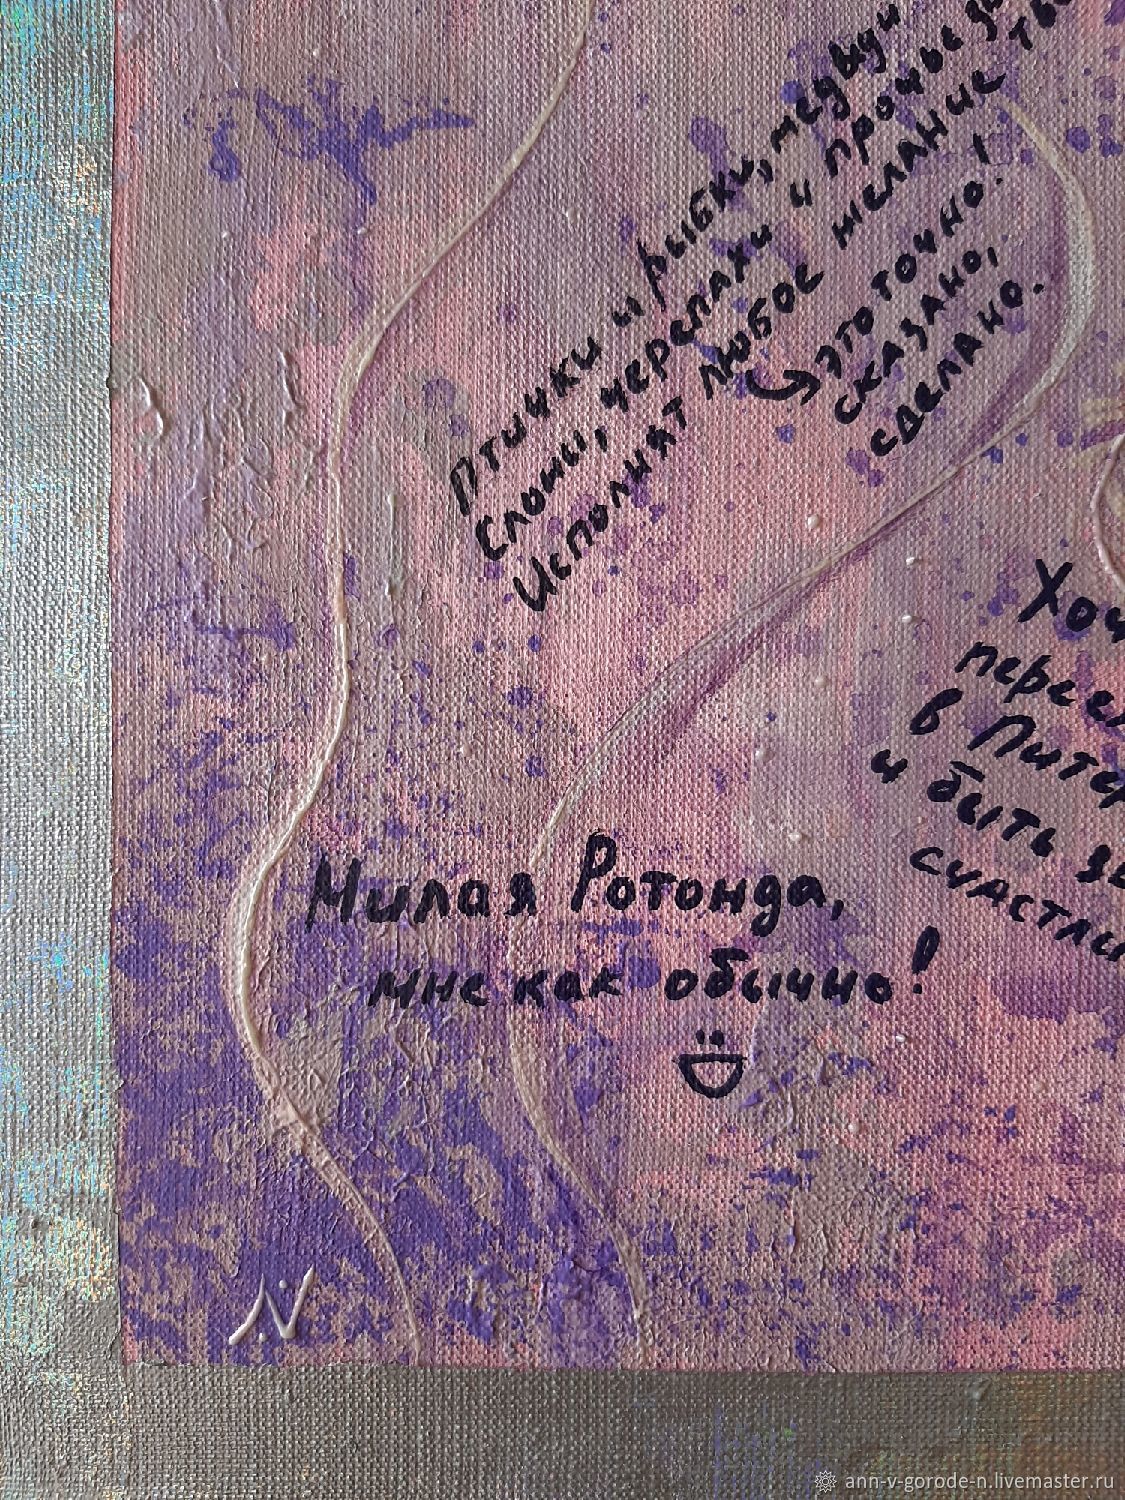 Птички и рыбки, медвед
Слоны, черепахи и прочые
Исполнят любое желание
это точно!
сказано,
сделано.
Хоч
перее
в Питер
и быть
счастли
Милая Ротонда,
мне как обычно!
N
ann-v-gorode-n.livemaster.ru